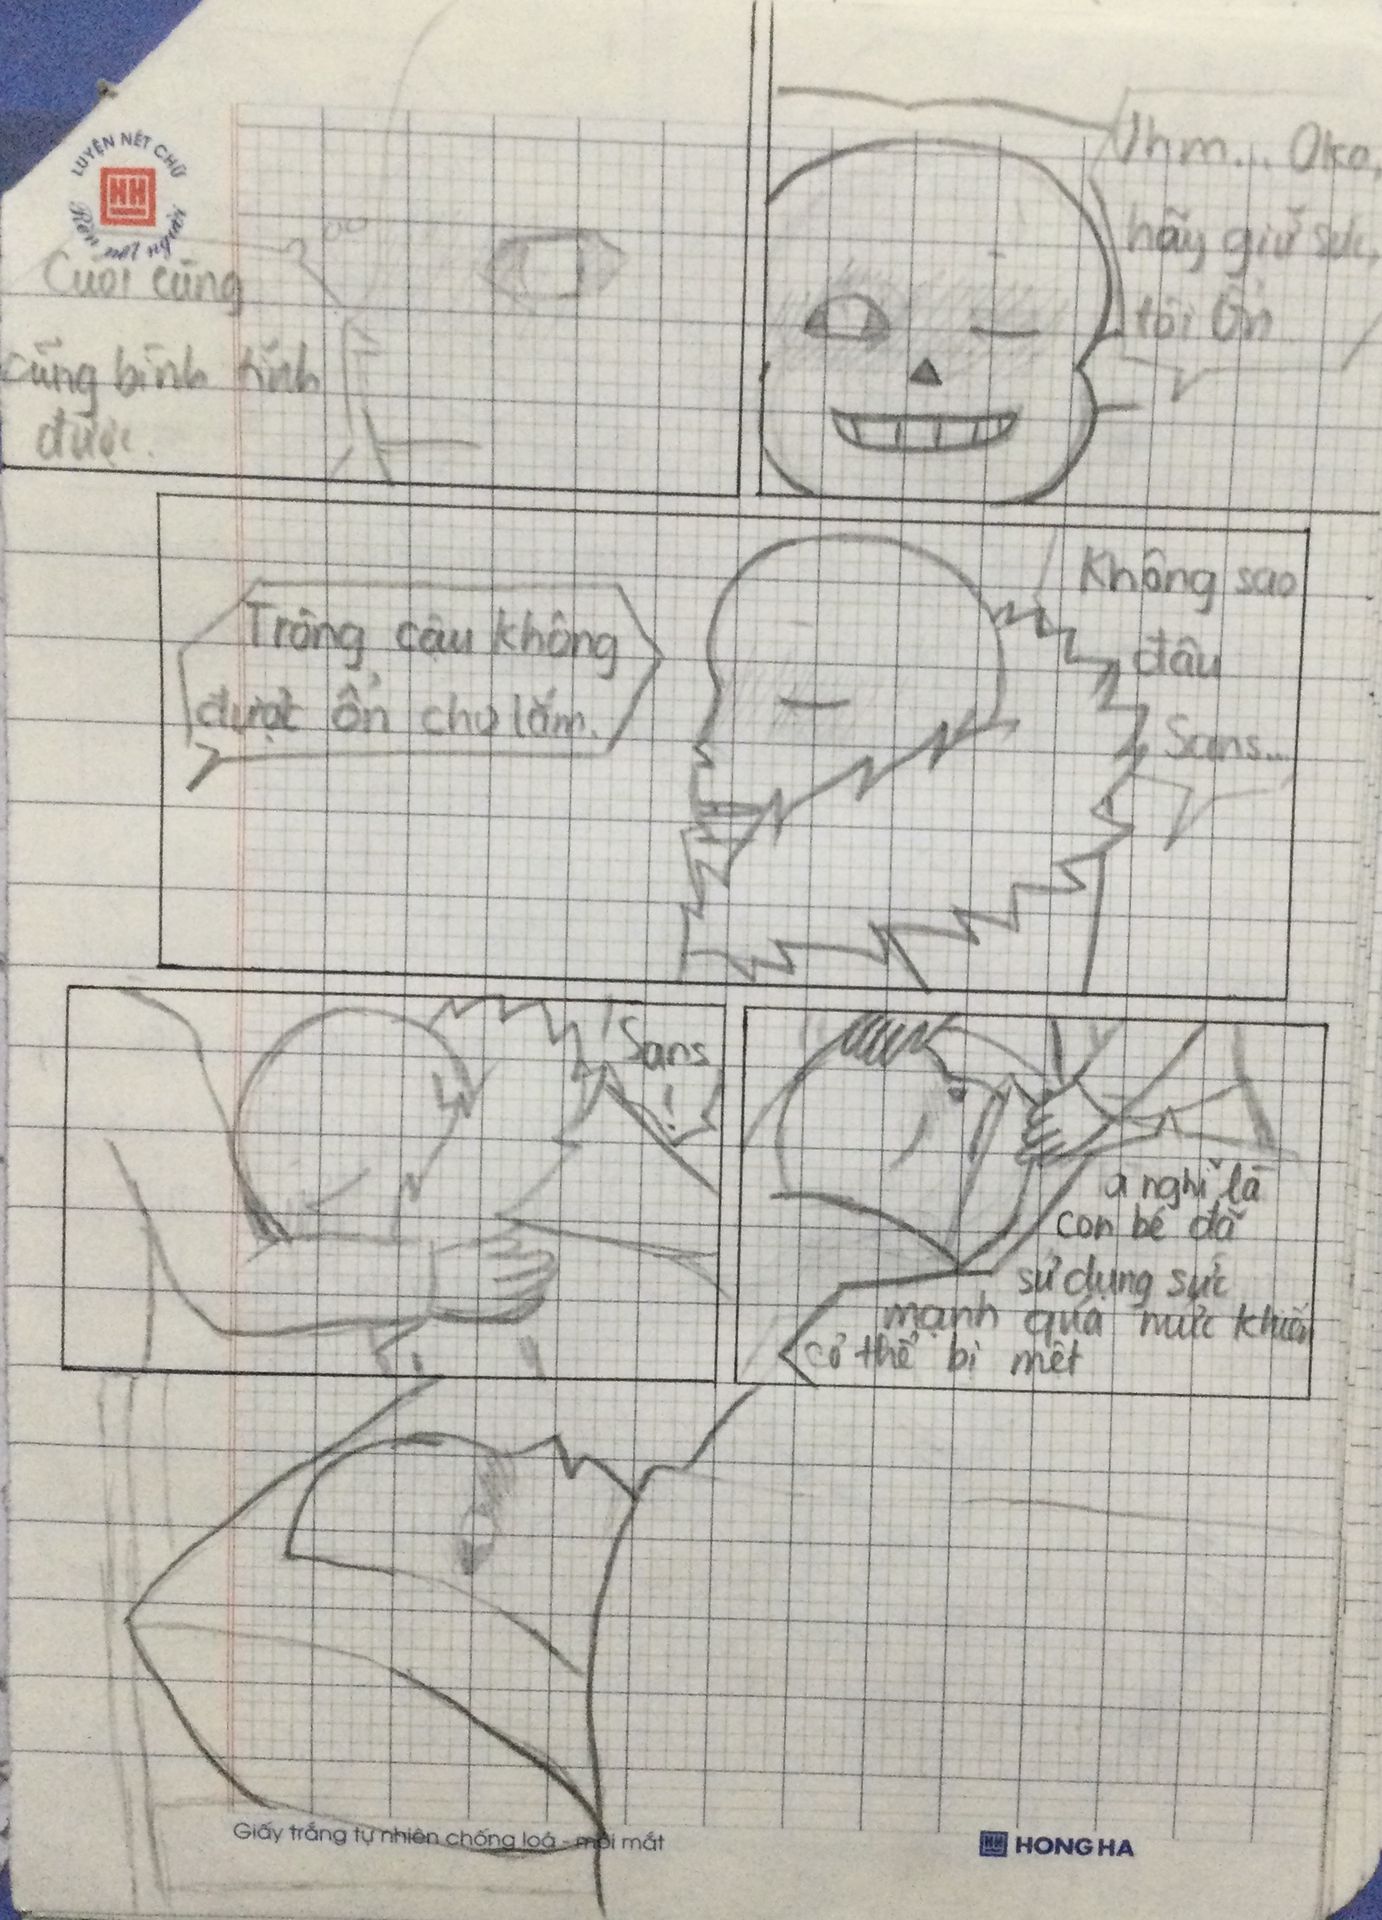 LUYỆN NÉT CHỮ
Rèn nết người
HH
Cuối cùng
cũng bình tĩnh
được.
Uhm... Oka,
hãy giữ sức,
tôi Ổn
Trông cậu không
được ổn cho lắm.
Không sao
đâu
Sans...
Sans
!
a nghĩ là
con bé đã
sử dụng sức
mạnh quá mức khiến
cơ thể bị mệt
Giấy trắng tự nhiên chống loá - mỏi mắt
HH HONG HA